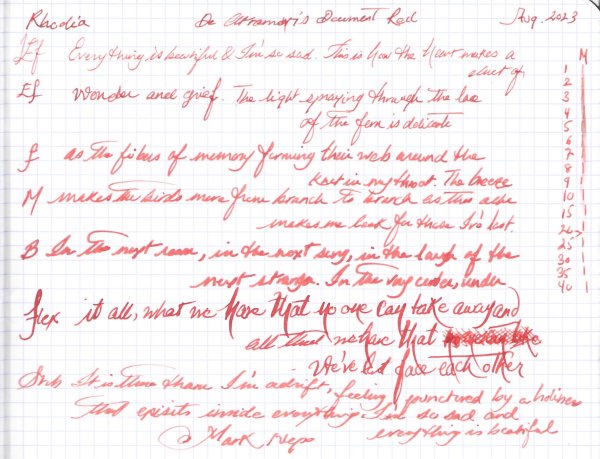 Rhodia De Atramentis Document Red Aug. 2023
Ef Everything is beautiful & I'm so sad. This is how the heart makes a
duet of
Ef wonder and grief. The light spraying through the lace
of the fern is delicate
F as the fibers of memory forming their web around the
knot in my throat. The breeze
M makes the birds move from branch to branch as this ache
makes me look for those I've lost
B In the next room, in the next song, in the laugh of the
next stranger. In the very center, under
flex it all, what we have that no one can take away and
all that we have that
We've lost face each other
Stub It is there that I'm adrift, feeling punctured by a holiness
that exists inside everything. I'm so sad and
everything is beautiful
Mark Nepo
M
1
2
3
4
5
6
7
8
9
10
15
20
25
30
35
40